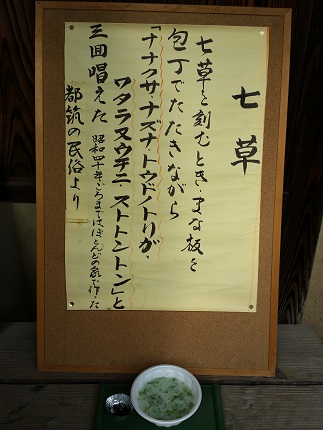 七草
七草を刻むとき・まな板を
包丁でたたきながら
「ナナクサ・ナズナ・トウドノトリガ・
ワタラヌウチニ・ストトントン」と
三回唱えた 昭和四十年ごろまではほとんどの家で作った
都筑の民俗より